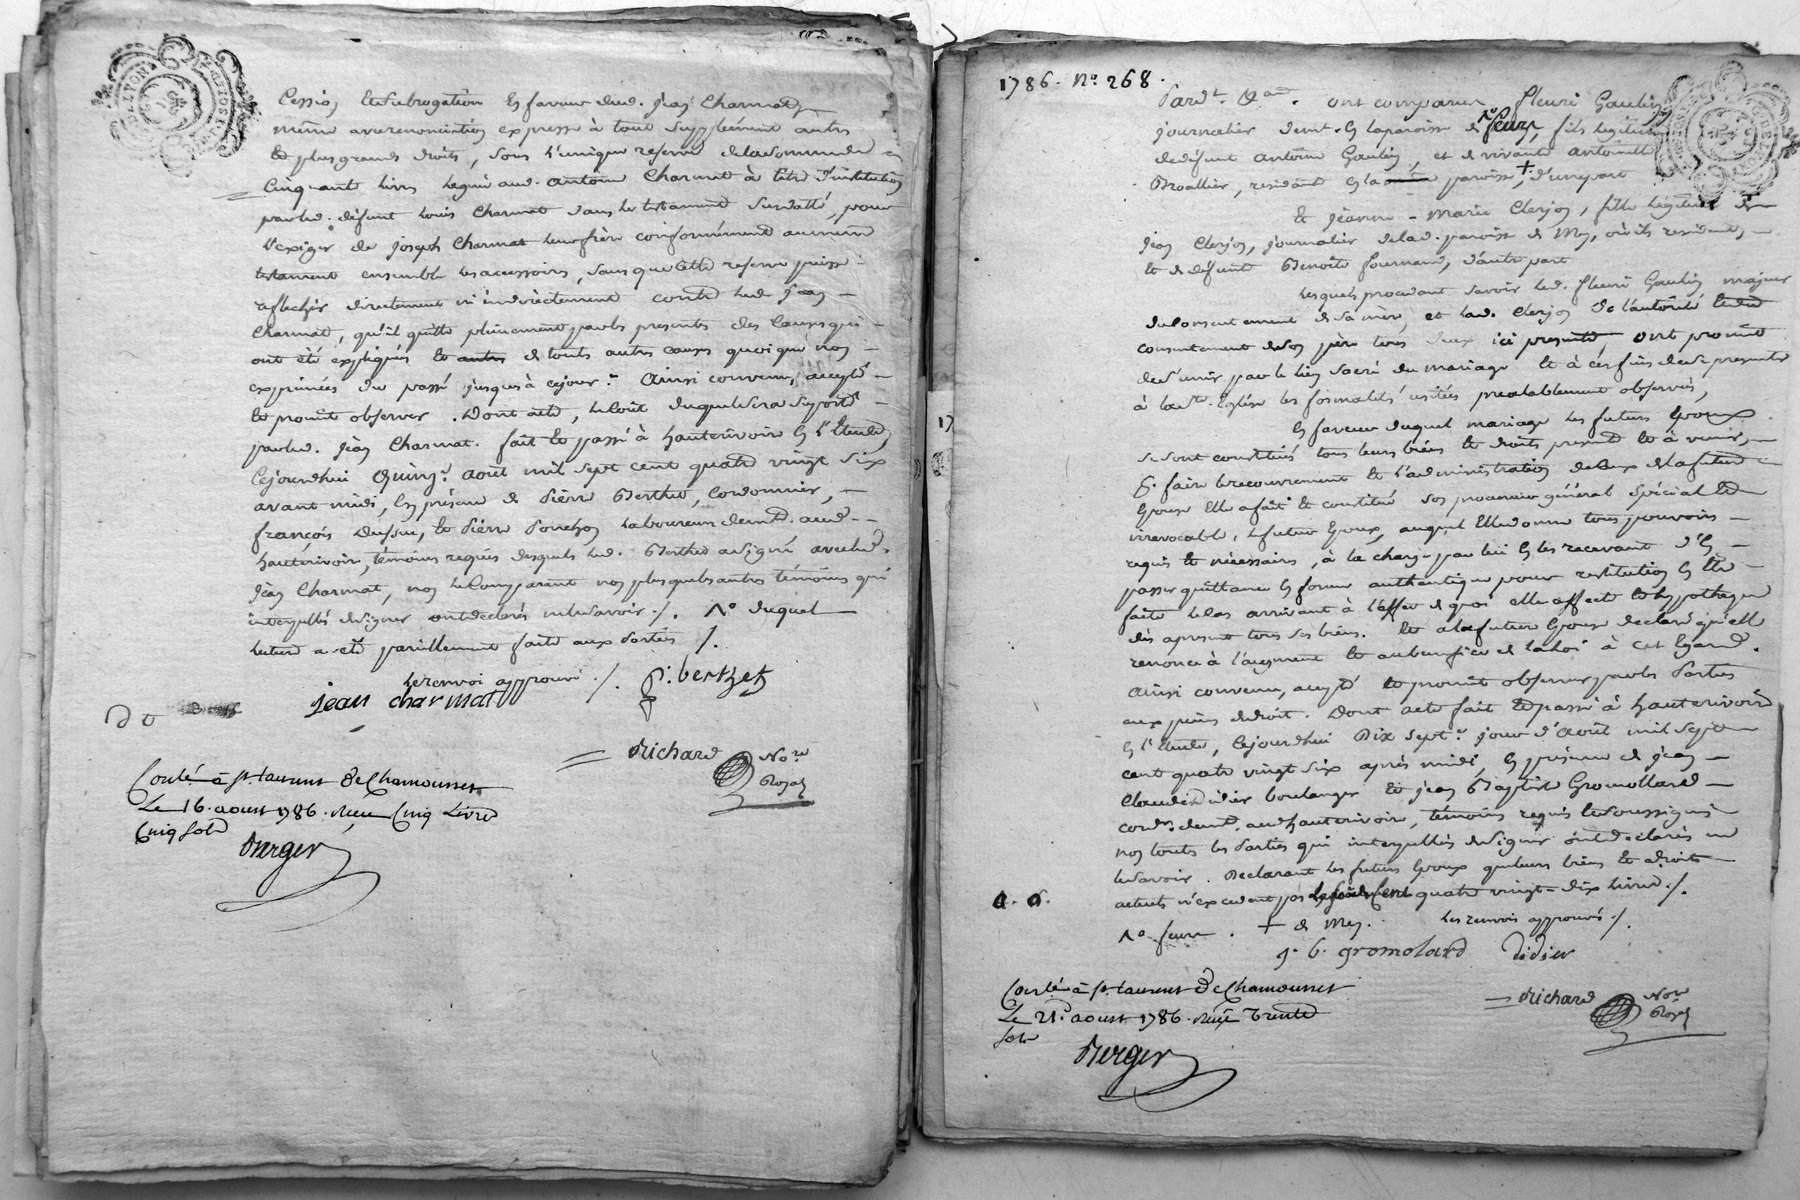 DE LYON
Cession et subrogation en faveur dud. jean Charmat
même avec renonciation expresse à tout supplément autres
et plus grands droits, sous l'unique reserve de la somme de
Cinquante livres leguée aud. antoine Charmat à titre d'institution
par led. défunt Louis Charmat dans le testament susdatté, pour
l'exiger de joseph Charmat leur frère conformément au même
testament ensemble les accessoires, sans que cette reserve puisse
reflechir directement ni indirectement contre led. jean
Charmat, qu'il quitte pleinement par les presentes des causes qui
ont été expliqués et autres de touts autres causes quoique non
exprimées du passé jusques à ce jour. Ainsi convenu, accepté
et promit observer. Dont acte, le Coût duquel sera suporté
par led. jean Charmat. fait et passé à hauterivoire en l'Etude,
Cejourdhui Quinze août mil sept cent quatre vingt six
avant midi, en présence de Pierre Berthet, cordonnier,
françois Dussu, et Pierre Ponchon laboureurs demt. aud.
hauterivoire, témoins requis desquels led. Berthet a signé avec led.
jean Charmat, non le Comparant non plus que les autres témoins qui
interpellés de signer ont declarés ne le savoir ./. 1º duquel
lecture a été pareillement faite aux Parties /.
le renvoi approuvé ./.
p: berthet
jean charmat
Richard No.re
Royal
Conlé à st. laurent de Chamousset
Le 16. aoust 1786. Reçu Cinq Livres
Cinq sols
Berger
1786. nº 268.
Pard.t ont comparu fleuri Gaulin
journalier demt. en la paroisse de 1º feurs, fils legitime
de défunt antoine Gaulin, et de vivante antoinette
Broallier, residant en la paroisse +, d'une part
Et jéanne-Marie Clerjon, fille legitime de
jean Clerjon, journalier de lad. paroisse de Mey, où ils resident,
et de défunte Benoîte fournand, d'autre part
Lesquels procedant savoir led. fleuri Gaulin majeur
du consentement de sa mere, et lad. Clerjon de l'autorité et du
consentement de son père tous deux ici presents ont promit
de s'unir par le lien sacré du mariage et à ces fins de se presenter
à la ste. Eglise les formalités usitées prealablement observées,
En faveur duquel mariage les futurs Epoux
se sont constitués tous leurs biens et droits presents et à venir,
p. faire le recouvrement et l'administration de ceux de la future
Epouse elle a fait et constitué son procureur général spécial et
irrevocable, le futur Epoux, auquel elle donne tous pouvoirs
requis et nécessaires, à la charge par lui en les recevant d'en
passer quittance en forme authentique pour restitution en être
faite le cas arrivant à l'effet de quoi elle affecte et hypotheque
dès apresent tous ses biens. Et a la future Epouse declaré qu'elle
renonce à l'augment et au benefice de la loi à cet égard.
Ainsi convenu, accepté et promit observer par les Parties
aux peines de droit. Dont acte fait et passé à hauterivoire
en l'Etude, cejourdhui Dix sept.e jour d'août mil sept
cent quatre vingt six après midi, en présence de jean
Claude didier boulanger et jean Baptiste Gromollard
cord.r demt. aud hauterivoire, témoins requis et soussignés
non touts les Parties qui interpellés de signer ont declarés ne
le savoir. Declarant les futurs Epoux que leurs biens et droits
actuels n'excedent pas cent quatre vingt-dix livres ./.
1º feurs. + de Mey. les renvois approuvés ./.
j. b. gromolard Didier
Richard No.re
Royal
Conlé à st. laurent de Chamousset
Le 21. aoust 1786. Reçu Trente
sols
Berger